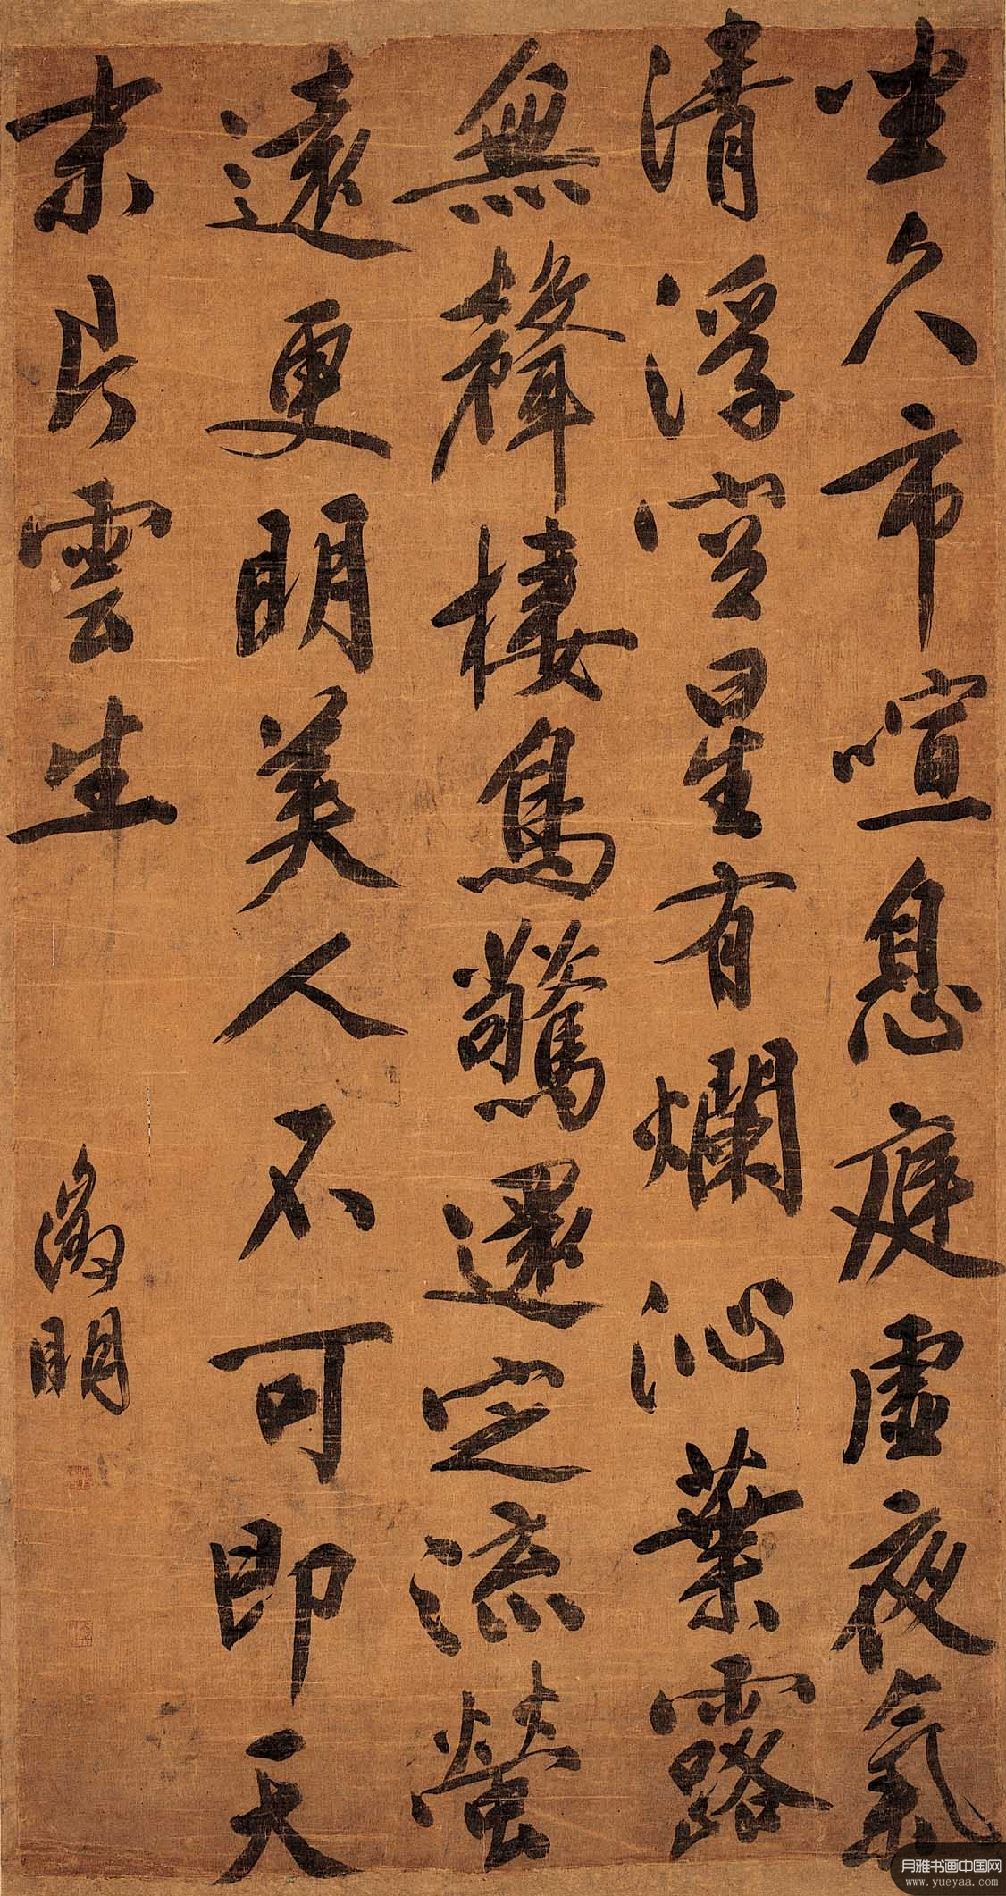 坐久市喧息庭虛夜氣
清浮空星有爛沁葉露
無聲棲鳥驚還定流螢
遠更明美人不可即天
末片雲生
徵明
月雅书画中国网
www.yueyaa.com